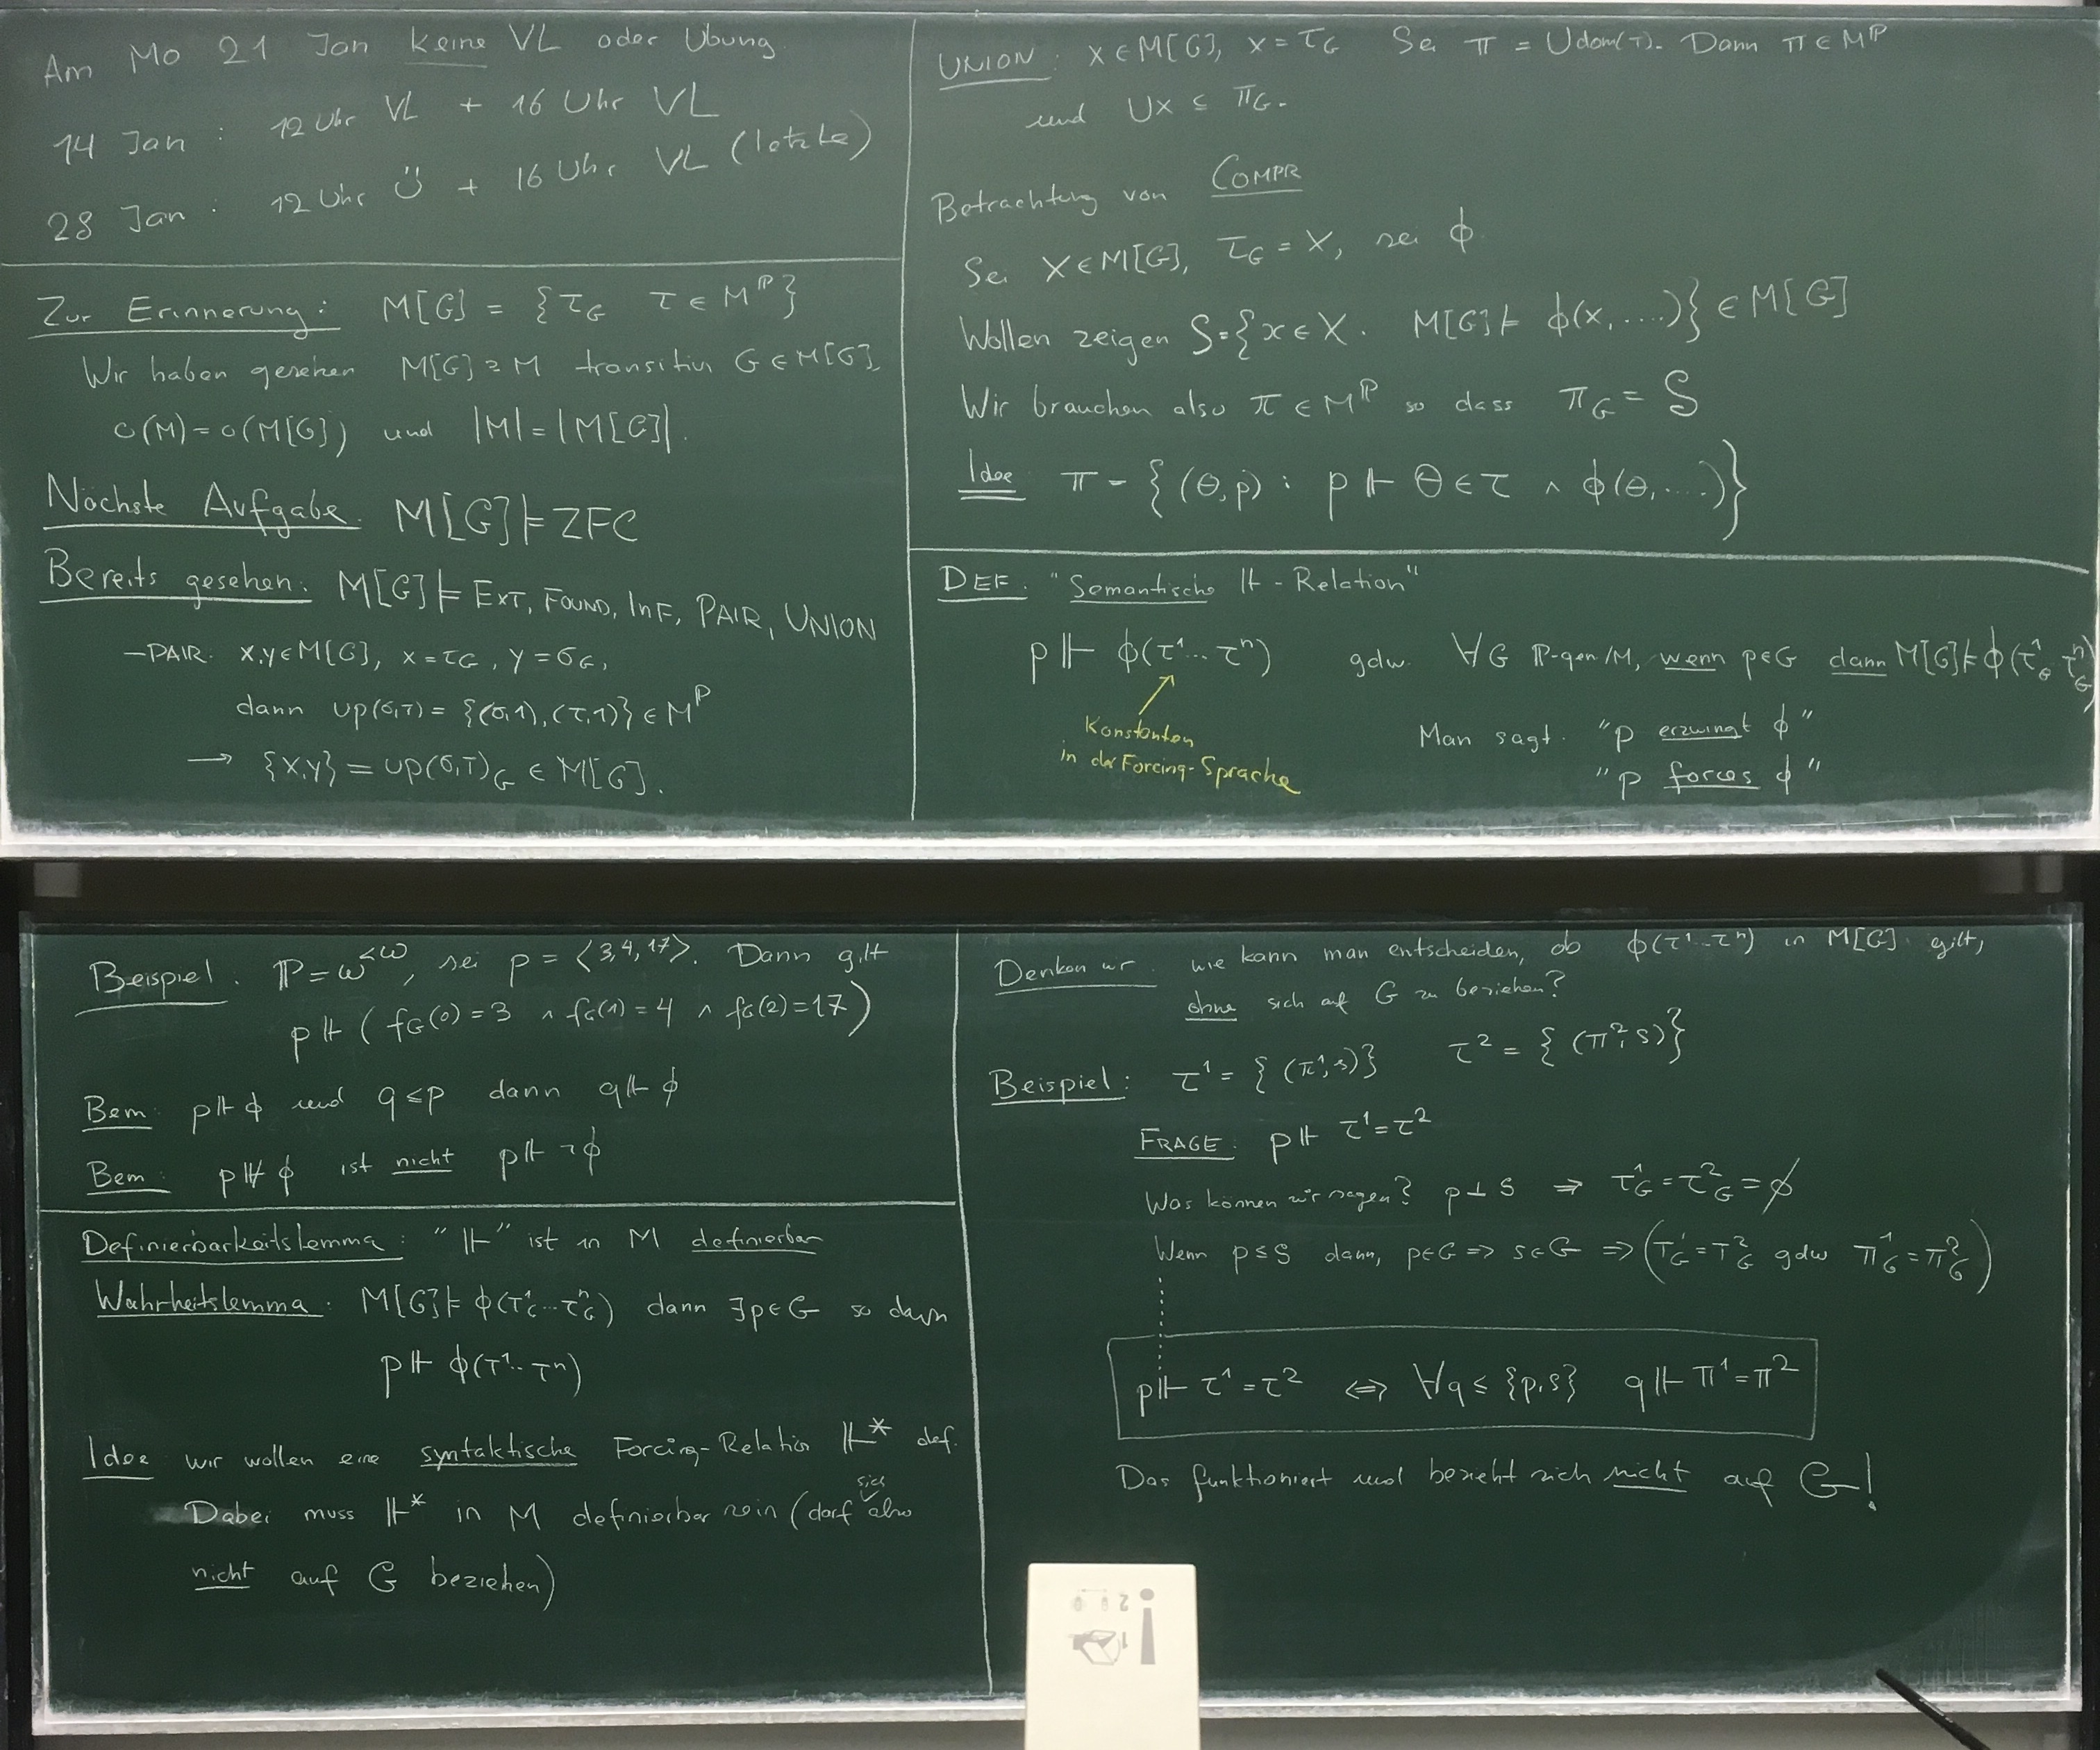 Am Mo 21 Jan keine VL oder Übung
14 Jan : 12 Uhr VL + 16 Uhr VL
28 Jan : 12 Uhr Ü + 16 Uhr VL (letzte)
Zur Erinnerung: M[G] = {τ_G τ ∈ M^ℙ}
Wir haben gesehen M[G] ⊇ M transitiv G ∈ M[G],
o(M) = o(M[G]) und |M| = |M[G]|.
Nächste Aufgabe. M[G] ⊨ ZFC
Bereits gesehen: M[G] ⊨ EXT, FOUND, INF, PAIR, UNION
- PAIR. x,y ∈ M[G], x = τ_G, y = σ_G,
dann up(σ,τ) = {(σ,1), (τ,1)} ∈ M^ℙ
→ {x,y} = up(σ,τ)_G ∈ M[G].
UNION: x ∈ M[G], x = τ_G Sei π = ∪dom(τ). Dann π ∈ M^ℙ
und ∪x ⊆ π_G.
Betrachtung von COMPR
Sei X ∈ M[G], τ_G = X, sei ϕ.
Wollen zeigen S = {x ∈ X. M[G] ⊨ ϕ(x, ....)} ∈ M[G]
Wir brauchen also π ∈ M^ℙ so dass π_G = S
Idee π = {(θ,p) : p ⊩ θ ∈ τ ∧ ϕ(θ, ....)}
DEF. "Semantische ⊩ - Relation"
p ⊩ ϕ(τ^1 ... τ^n) gdw. ∀G ℙ-gen/M, wenn p∈G dann M[G] ⊨ ϕ(τ^1_G τ^n_G)
Konstanten
in der Forcing-Sprache
Man sagt. "p erzwingt ϕ"
"p forces ϕ"
Beispiel. ℙ = ω^{<ω}, sei p = ⟨3,4,17⟩. Dann gilt
p ⊩ (f_G(0) = 3 ∧ f_G(1) = 4 ∧ f_G(2) = 17)
Bem: p ⊩ ϕ und q ≤ p dann q ⊩ ϕ
Bem: p ⊮ ϕ ist nicht p ⊩ ¬ϕ
Definierbarkeitslemma: "⊩" ist in M definierbar
Wahrheitslemma: M[G] ⊨ ϕ(τ^1_G ... τ^n_G) dann ∃p∈G so dass
p ⊩ ϕ(τ^1 .. τ^n)
Idee wir wollen eine syntaktische Forcing-Relation ⊩* def.
Dabei muss ⊩* in M definierbar sein (darf sich also
nicht auf G beziehen)
Denken wir. wie kann man entscheiden, ob ϕ(τ^1 .. τ^n) in M[G] gilt,
ohne sich auf G zu beziehen?
Beispiel: τ^1 = {(π^1, s)} τ^2 = {(π^2, s)}
FRAGE: p ⊩ τ^1 = τ^2
Was können wir sagen? p ⊥ s ⇒ τ^1_G = τ^2_G = ∅
Wenn p ≤ s dann, p∈G ⇒ s∈G ⇒ (τ^1_G = τ^2_G gdw π^1_G = π^2_G)
p ⊩ τ^1 = τ^2 ⇔ ∀q ≤ {p,s} q ⊩ π^1 = π^2
Das funktioniert und bezieht sich nicht auf G!